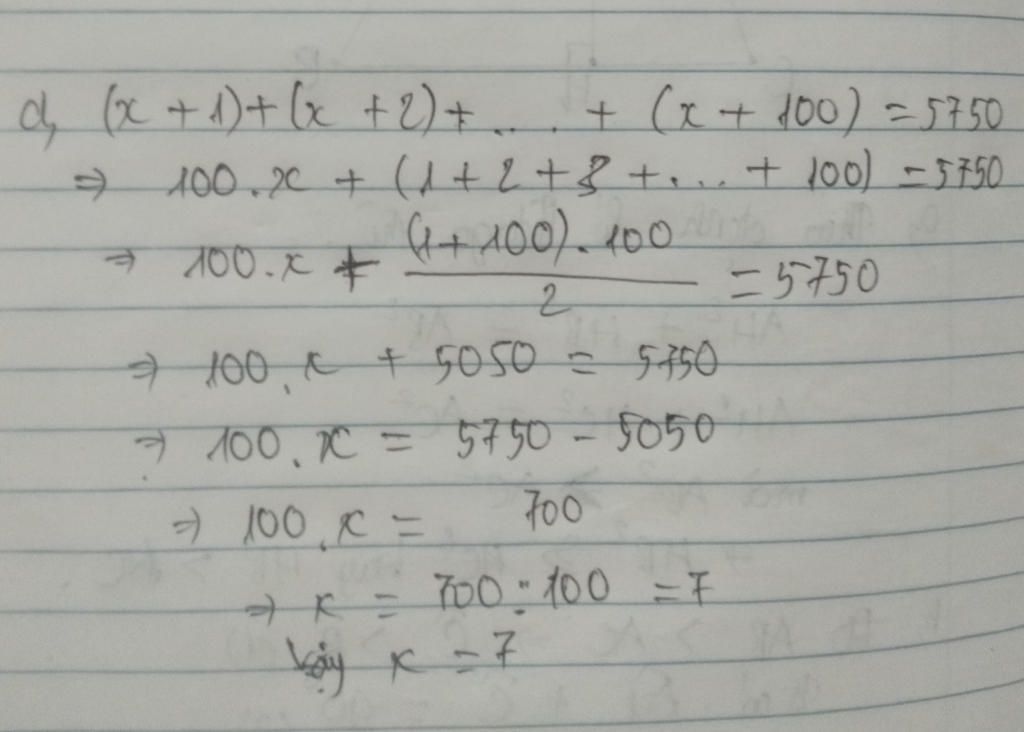 d, (x + 1) + (x + 2) + .... + (x + 100) = 5750
⇒ 100.x + (1 + 2 + 3 + .... + 100) = 5750
⇒ 100.x + (1 + 100).100 / 2 = 5750
⇒ 100.x + 5050 = 5750
⇒ 100.x = 5750 - 5050
⇒ 100.x = 700
⇒ x = 700 : 100 = 7
Vậy x = 7